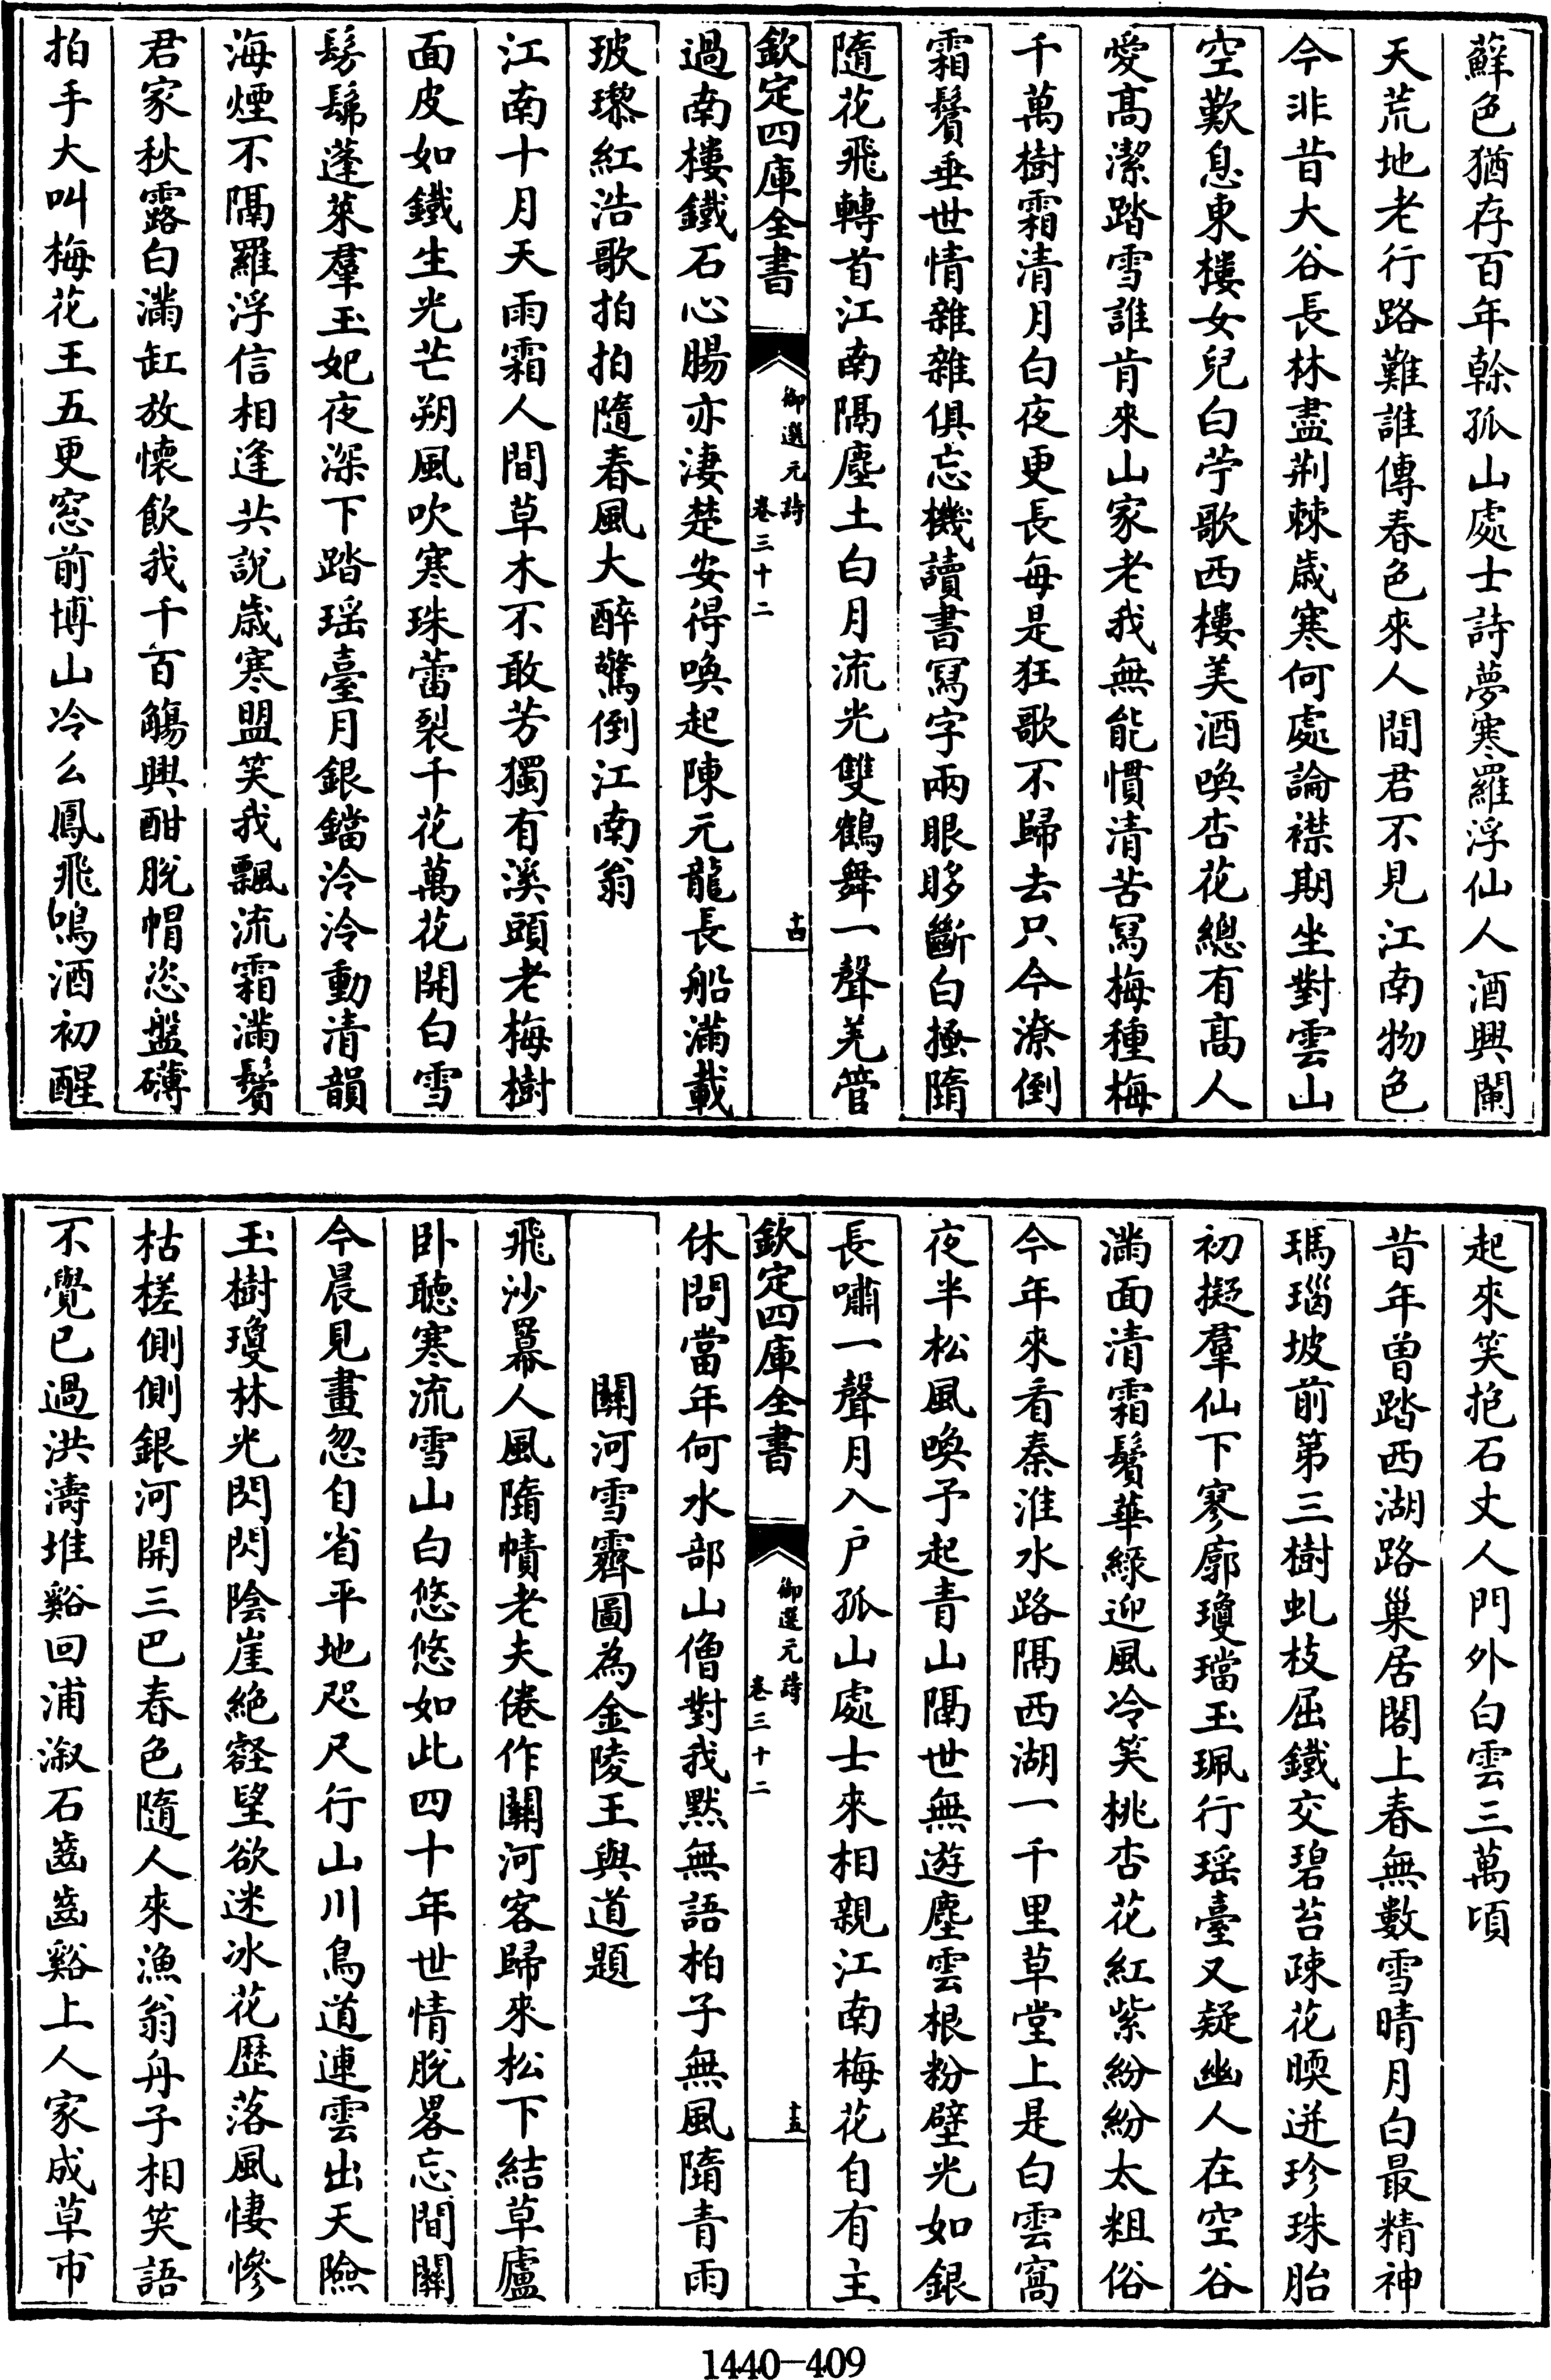 蘚色猶存百年榦孤山處士詩夢寒羅浮仙人酒興闌
天荒地老行路難誰傳春色來人間君不見江南物色
今非昔大谷長林盡荆棘歲寒何處論襟期坐對雲山
空歎息東樓女兒白苧歌西樓美酒喚杏花總有高人
愛高潔踏雪誰肯來山家老我無能慣清苦冩梅種梅
千萬樹霜清月白夜更長每是狂歌不歸去只今潦倒
霜鬢垂世情雜雜俱忘機讀書冩字兩眼眵斷白搔隋
隨花飛轉首江南隔塵土白月流光雙鶴舞一聲羌管
欽定四庫全書
御選元詩
卷三十二
十四
過南樓鐵石心腸亦淒楚安得喚起陳元龍長船滿載
玻瓈紅浩歌拍拍隨春風大醉驚倒江南翁
江南十月天雨霜人間草木不敢芳獨有溪頭老梅樹
面皮如鐵生光芒朔風吹寒珠蕾裂千花萬花開白雪
髣髴蓬萊羣玉妃夜深下踏瑶臺月銀鐺泠泠動清韻
海煙不隔羅浮信相逢共說歲寒盟笑我飄流霜滿鬢
君家秋露白滿缸放懷飲我千百觴興酣脫帽恣盤礴
拍手大叫梅花王五更窓前博山冷么鳳飛鳴酒初醒
起來笑抱石丈人門外白雲三萬頃
昔年曽踏西湖路巢居閣上春無數雪晴月白最精神
瑪瑙坡前第三樹虬枝屈鐵交碧苔疎花暎迸珍珠胎
初擬羣仙下寥廓瓊璫玉珮行瑶臺又疑幽人在空谷
滿面清霜鬢華綠迎風冷笑桃杏花紅紫紛紛太粗俗
今年來看秦淮水路隔西湖一千里草堂上是白雲窩
夜半松風喚予起青山隔世無遊塵雲根粉壁光如銀
長嘯一聲月入户孤山處士來相親江南梅花自有主
欽定四庫全書
御選元詩
卷三十二
十五
休問當年何水部山僧對我默無語柏子無風隋青雨
關河雪霽圖為金陵王與道題
飛沙幕人風隋幘老夫倦作關河客歸來松下結草廬
卧聽寒流雪山白悠悠如此四十年世情脫畧忘間關
今晨見畫忽自省平地咫尺行山川鳥道連雲出天險
玉樹瓊林光閃閃陰崖絶壑望欲迷冰花歷落風悽慘
枯槎側側銀河開三巴春色隨人來漁翁舟子相笑語
不覺已過洪濤堆谿回浦溆石齒齒谿上人家成草市
1440－409